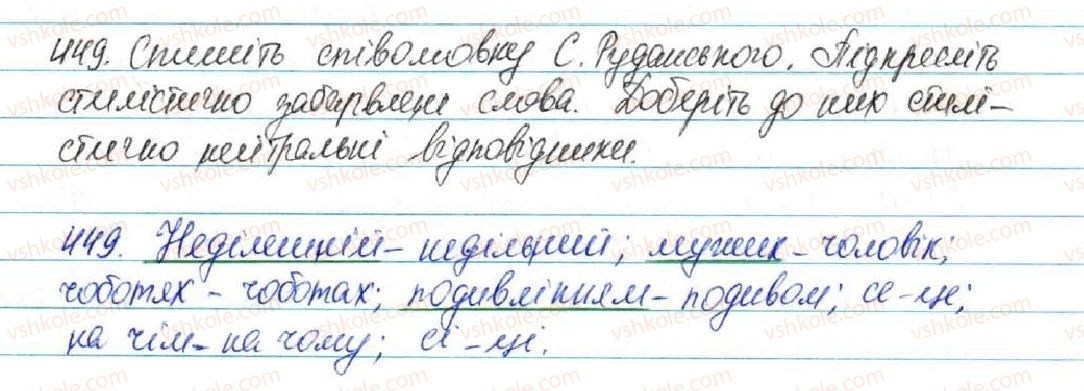 449. Спишіть співомовку С. Руданського. Підкресліть
стилістично забарвлені слова. Доберіть до них стилі-
стично нейтральні відповідники.
449. Неділишній - недільний; мужик - чоловік;
чоботях - чоботах; подивлінням - подивом; се - це;
на чім - на чому; сі - ці.